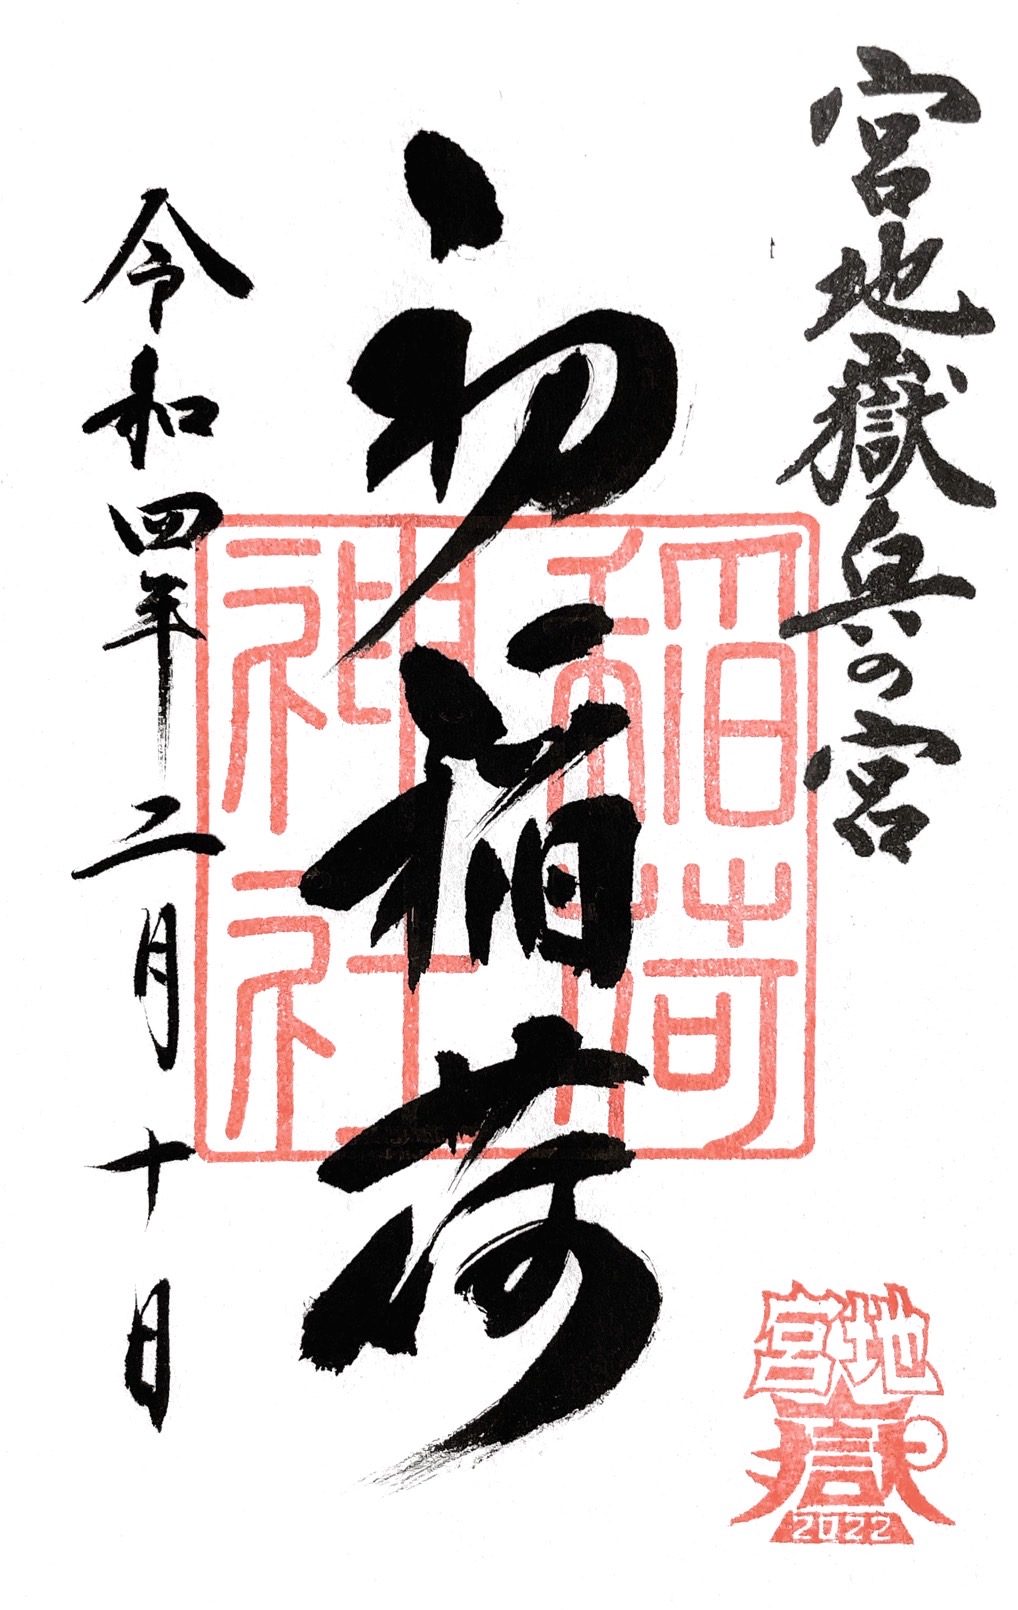 宮地嶽兵の宮
初稲荷
稲荷
神社
令和四年二月十日
宮地
嶽
2022